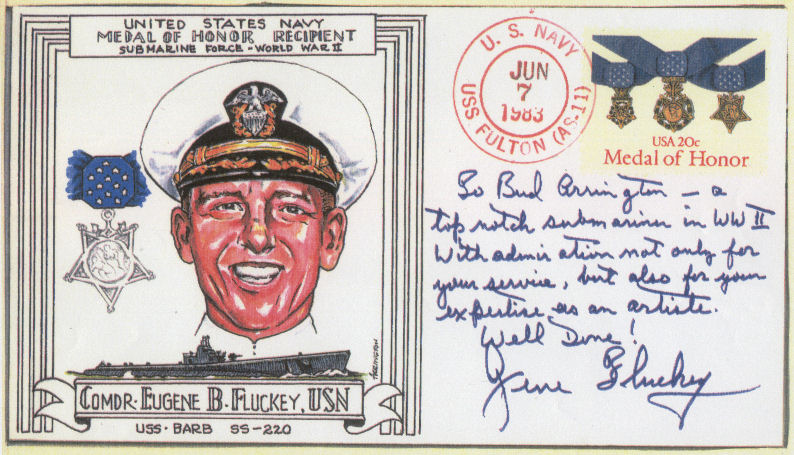 UNITED STATES NAVY
MEDAL OF HONOR RECIPIENT
SUBMARINE FORCE - WORLD WAR II
ARRINGTON
COMDR. EUGENE B. FLUCKEY, USN
USS. BARB SS-220
U. S. NAVY
JUN
7
1983
USS FULTON (AS-11)
USA 20c
Medal of Honor
To Bud Arrington — a
top notch submariner in WW II
With admiration not only for
your service, but also for your
expertise as an artiste.
Well Done!
Gene Fluckey